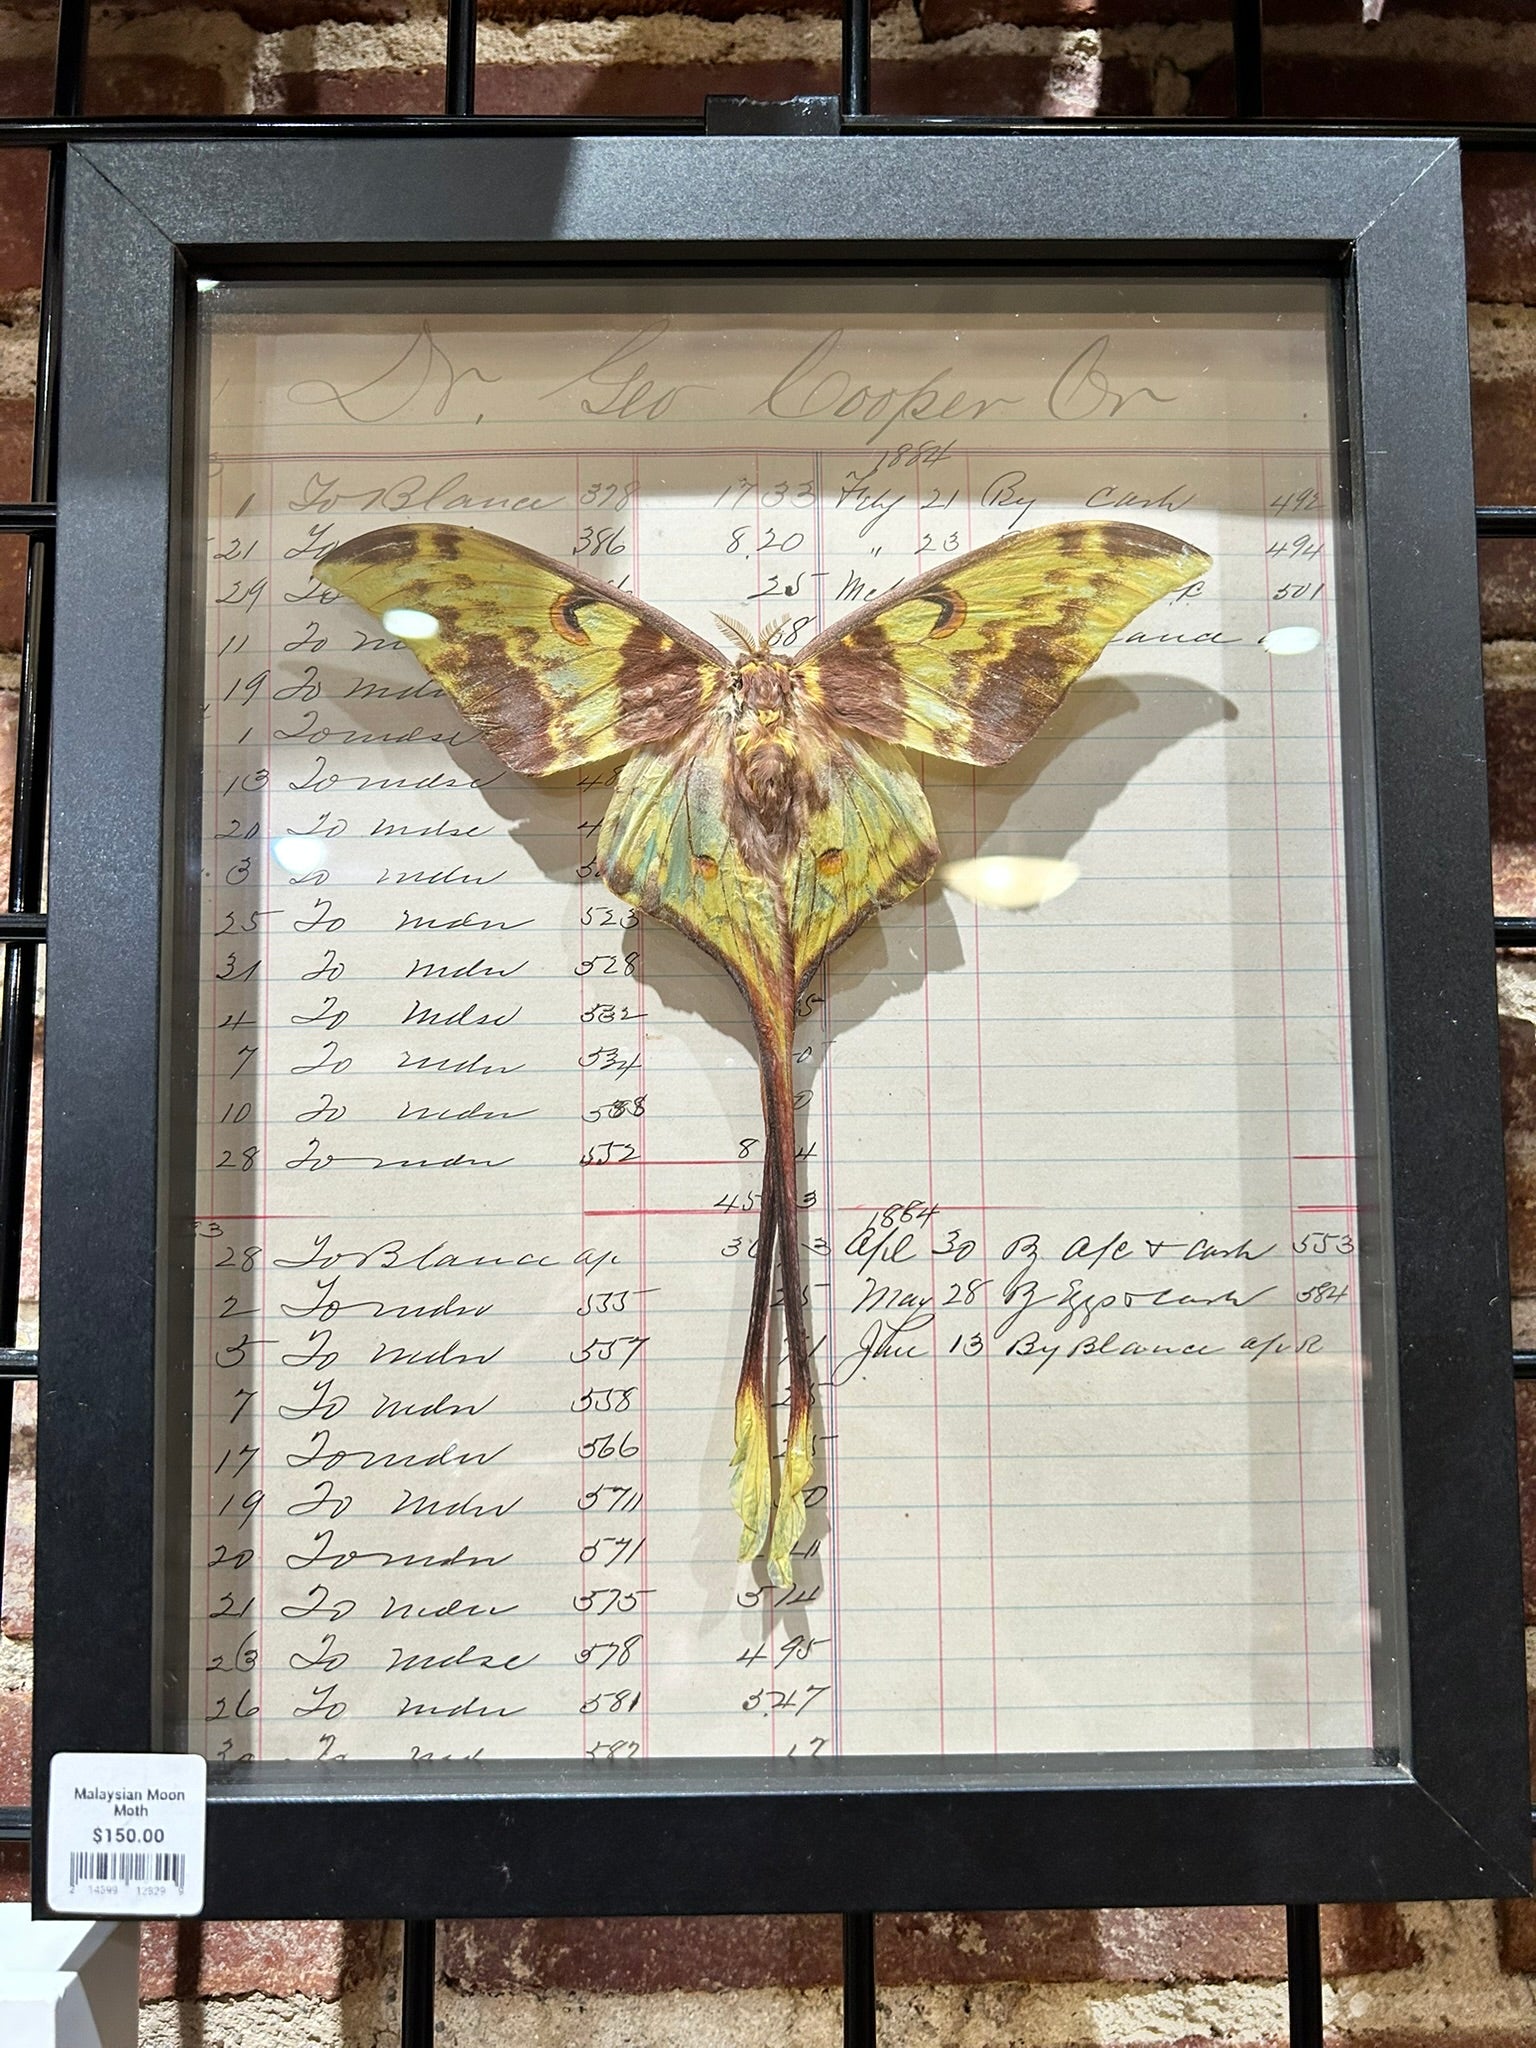 Dr. Geo Cooper Cr
1884
1 To Blance 378 17 33 Feby 21 By Cash 492
21 To 386 8.20 " 23 494
29 To 25 501
11 To 68
19 To mdse
1 To mdse
13 To mdse 48
20 To mdse 4
3 To mdse
25 To mdse 523
31 To mdse 528
4 To mdse 532
7 To mdse 534
10 To mdse 538
28 To mdse 552 8 4
45 3
1884
28 To Blance ap 3 Apl 30 By a/c + Cash 553
2 To mdse 535 25 May 28 By Eggs + Cash 584
5 To mdse 557 June 13 By Blance
7 To mdse 558 25
17 To mdse 566 25
19 To mdse 5711
20 To mdse 571
21 To mdse 575 5 74
23 To mdse 578 4 95
26 To mdse 581 5.47
30 To 587 17
Malaysian Moon
Moth
$150.00